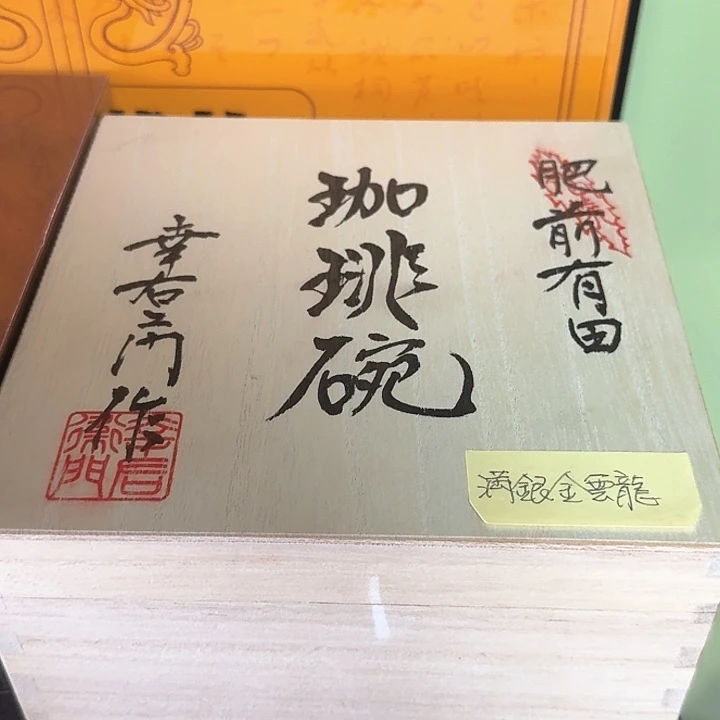 肥前有田
珈琲碗
幸右エ门作
幸右衛門
満銀金雲龍